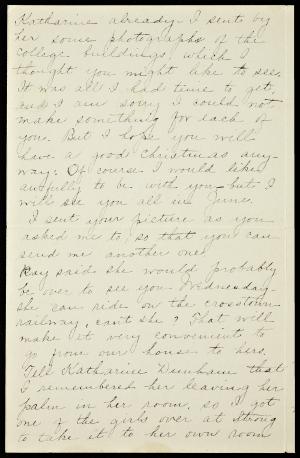 Katharine already. I sent by
her some photographs of the
College buildings, which I
thought you might like to see.
It was all I had time to get,
and I am sorry I could not
make something for each of
you. But I hope you will
have a good Christmas any-
way. Of course I would like
awfully to be with you but I
will see you all in June.
I sent your picture as you
asked me to, so that you can
send me another one.
Kay said she would probably
be over to see you Wednesday.
She can ride on the crosstown
railway, can't she? That will
make it very convenient to
go from our house to hers.
Tell Katharine Dunham that
I remembered her leaving her
palm in her room, so I got
one of the girls over at Strong
to take it to her own room